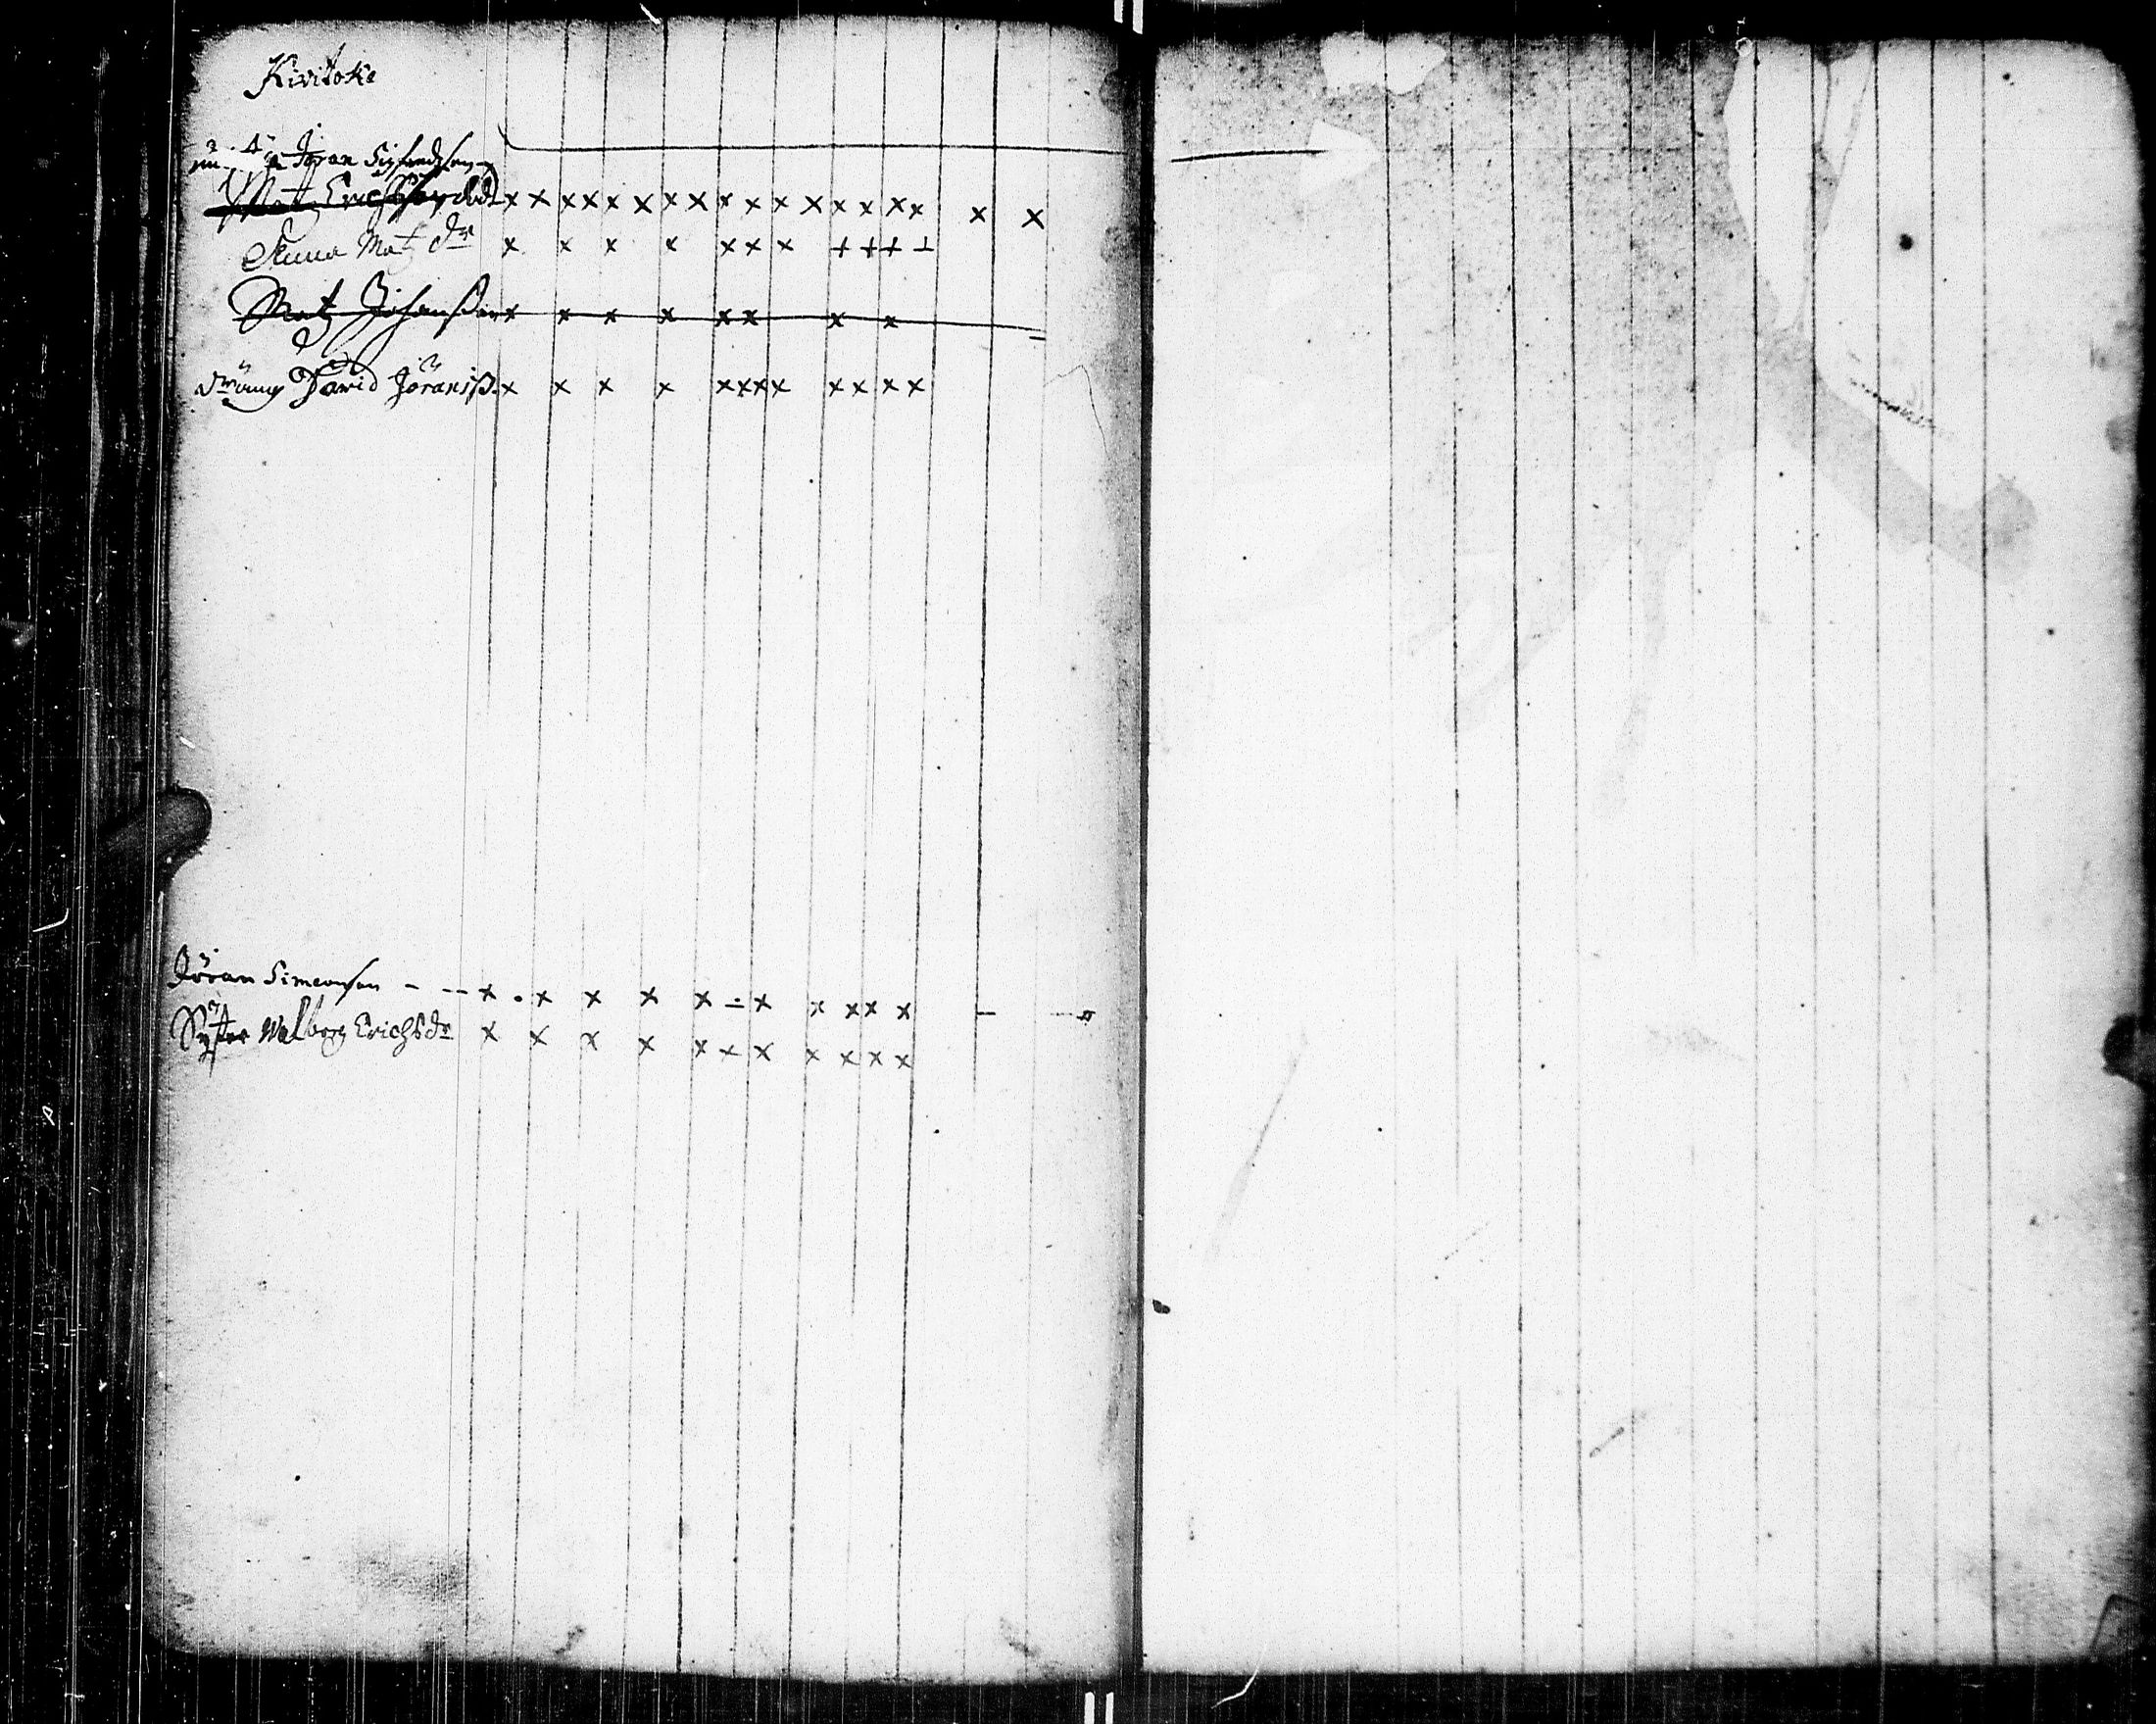 Kivitoke
Jöran Sigfredsson
Mats Erichsson död x x x x x x x x x x x x x x x x x x
Anna Matsdr x x x x x x x + + + +
Mats Johansson x x x x x x x x
dräng David Jöranss. x x x x x x x x x x x x
Jöran Simeonson - -- x . x x x x ÷ x x x x x
Syster Walborg Erichsdr x x x x x x x x x x x